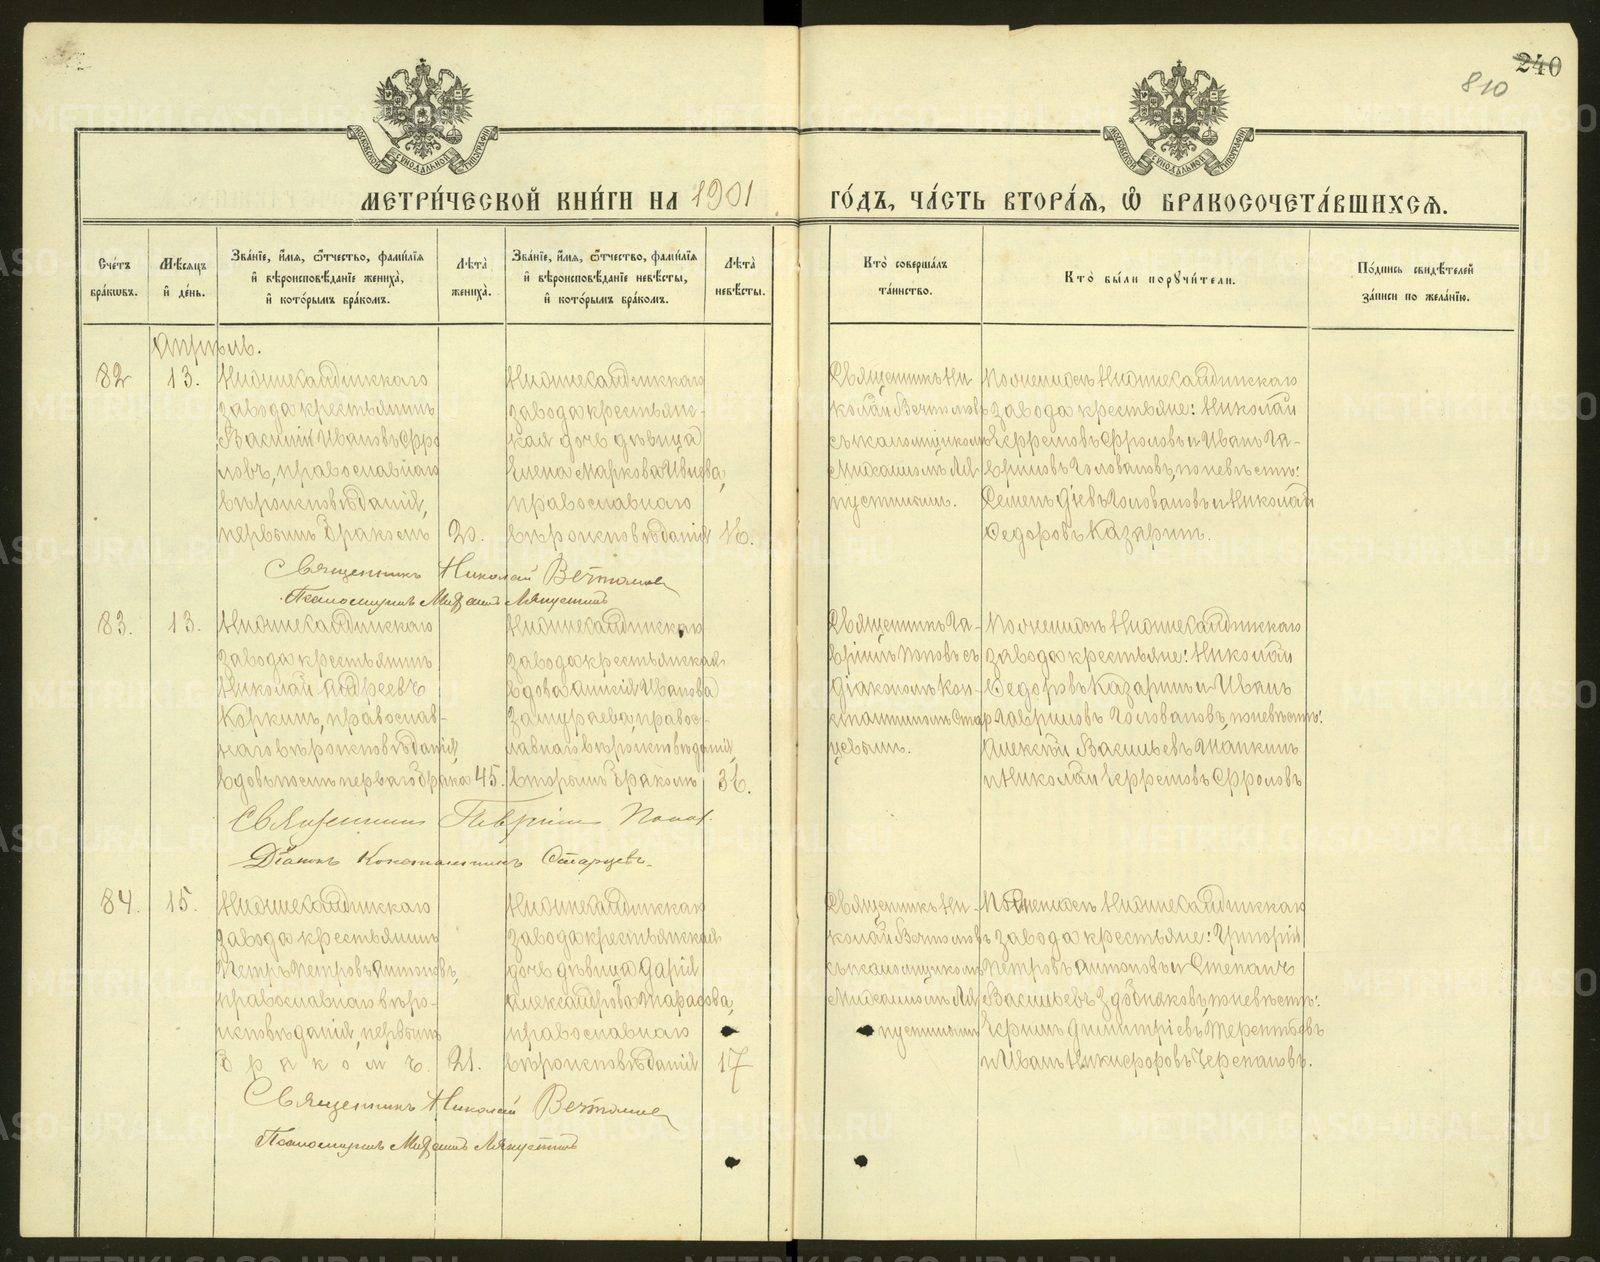 240
810
МЕТРИ́ЧЕСКОЙ КНИ́ГИ НА 1901 ГО́ДЪ, ЧА́СТЬ ВТОРА́Я, Ѡ҆ БРАКОСОЧЕТА́ВШИХСЯ.
Сче́тъ бра́кωвъ.
Мѣ́сяцъ и҆ де́нь.
Зва́нїе, и҆́мя, ѻ҆́тчество, фами́лїя
и҆ вѣроисповѣ́данїе жениха̀,
и҆ кото́рымъ бра́комъ.
Лѣта̀ жениха̀.
Зва́нїе, и҆́мя, ѻ҆́тчество, фами́лїя
и҆ вѣроисповѣ́данїе невѣ́сты,
и҆ кото́рымъ бра́комъ.
Лѣта̀ невѣ́сты.
Кто̀ соверша́лъ
та́инство.
Кто̀ бы́ли порꙋчи́тели.
По́дпись свидѣ́телей
за́писи по жела́нїю.
Апрѣль.
82
13.
Нижнесалдинскаго
завода крестьянинъ
Василій Ивановъ Фро
ловъ, православнаго
вѣроисповѣданія,
первымъ бракомъ
20.
Нижнесалдинскаго
завода крестьянс-
кая дочь дѣвица
Елена Маркова
православнаго
вѣроисповѣданія
16.
Священникъ Ни
колай Вечтомовъ
съ псаломщикомъ
Михаиломъ Ля
пустинымъ.
По женихѣ: Нижнесалдинскаго
завода крестьяне: Николай
Ефремовъ Фроловъ и Иванъ Га-
вриловъ Головановъ, по невѣстѣ:
Семенъ Головановъ и Николай
Федоровъ Казаринъ.
Священникъ Николай Вечтомовъ
Псаломщикъ Михаилъ Ляпустинъ
83.
13.
Нижнесалдинскаго
завода крестьянинъ
Николай Андреевъ
Коркинъ, православ-
наго вѣроисповѣданія,
вдовъ послѣ перваго брака
45.
Нижнесалдинскаго
завода крестьянская
вдова Анисія Иванова
Замураева, правос-
лавнаго вѣроисповѣданія,
вторымъ бракомъ
36.
Священникъ Га-
вріилъ Поповъ съ
діакономъ Кон-
стантиномъ Стар
цевымъ.
По женихѣ Нижнесалдинскаго
завода крестьяне: Николай
Федоровъ Казаринъ и Иванъ
Гавриловъ Головановъ, по невѣстѣ:
Алексѣй Васильевъ Шапкинъ
и Николай Ефремовъ Фроловъ
Священникъ Гавріилъ Поповъ.
Діаконъ Константинъ Старцевъ.
84.
15.
Нижнесалдинскаго
завода крестьянинъ
Петръ Петровъ Антоновъ,
православнаго вѣро-
исповѣданія, первымъ
бракомъ.
21.
Нижнесалдинскаго
завода крестьянская
дочь дѣвица Дарія
Александрова Тарасова,
православнаго
вѣроисповѣданія
17
Священникъ Ни-
колай Вечтомовъ
съ псаломщикомъ
Михаиломъ Ля
пустинымъ
По женихѣ Нижнесалдинскаго
завода крестьяне: Григорій
Петровъ Антоновъ и Степанъ
Васильевъ Здобняковъ, по невѣстѣ:
Димитріевъ Терентьевъ
и Иванъ Никифоровъ Черепановъ.
Священникъ Николай Вечтомовъ
Псаломщикъ Михаилъ Ляпустинъ
METRIKI.GASO-URAL.RU